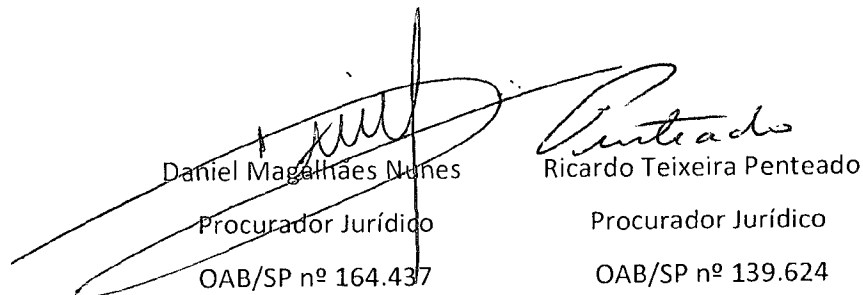 Penteado
Daniel Magalhães Nunes
Procurador Jurídico
OAB/SP nº 164.437
Ricardo Teixeira Penteado
Procurador Jurídico
OAB/SP nº 139.624